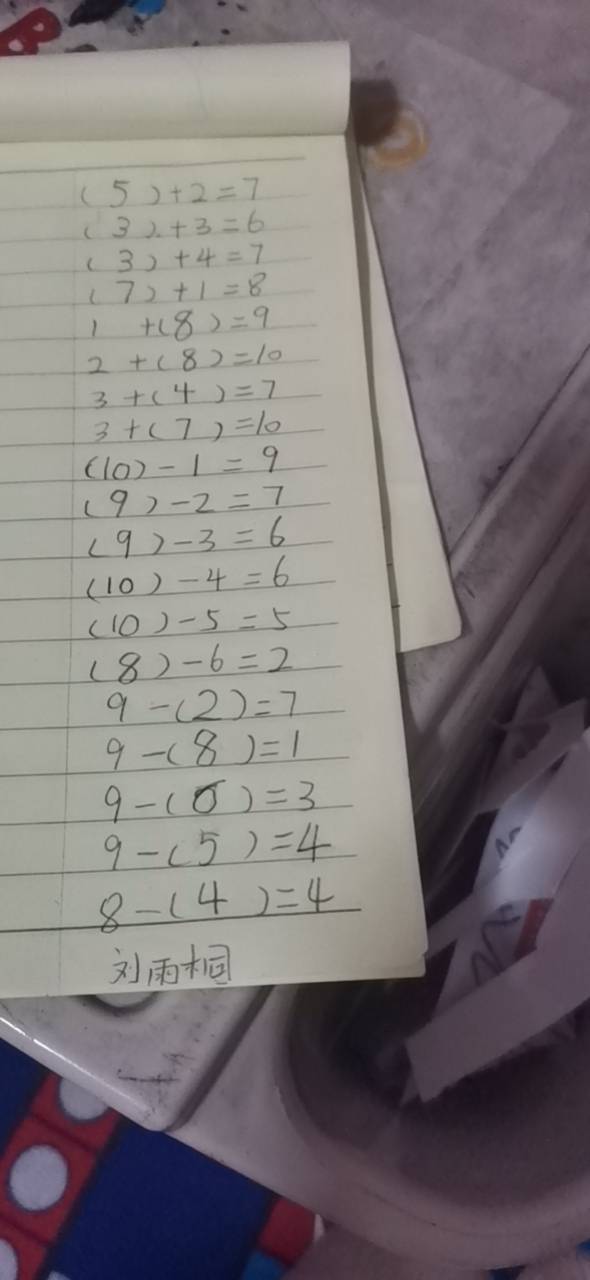 (5)+2=7
(3)+3=6
(3)+4=7
(7)+1=8
1+(8)=9
2+(8)=10
3+(4)=7
3+(7)=10
(10)-1=9
(9)-2=7
(9)-3=6
(10)-4=6
(10)-5=5
(8)-6=2
9-(2)=7
9-(8)=1
9-(6)=3
9-(5)=4
8-(4)=4
刘雨桐